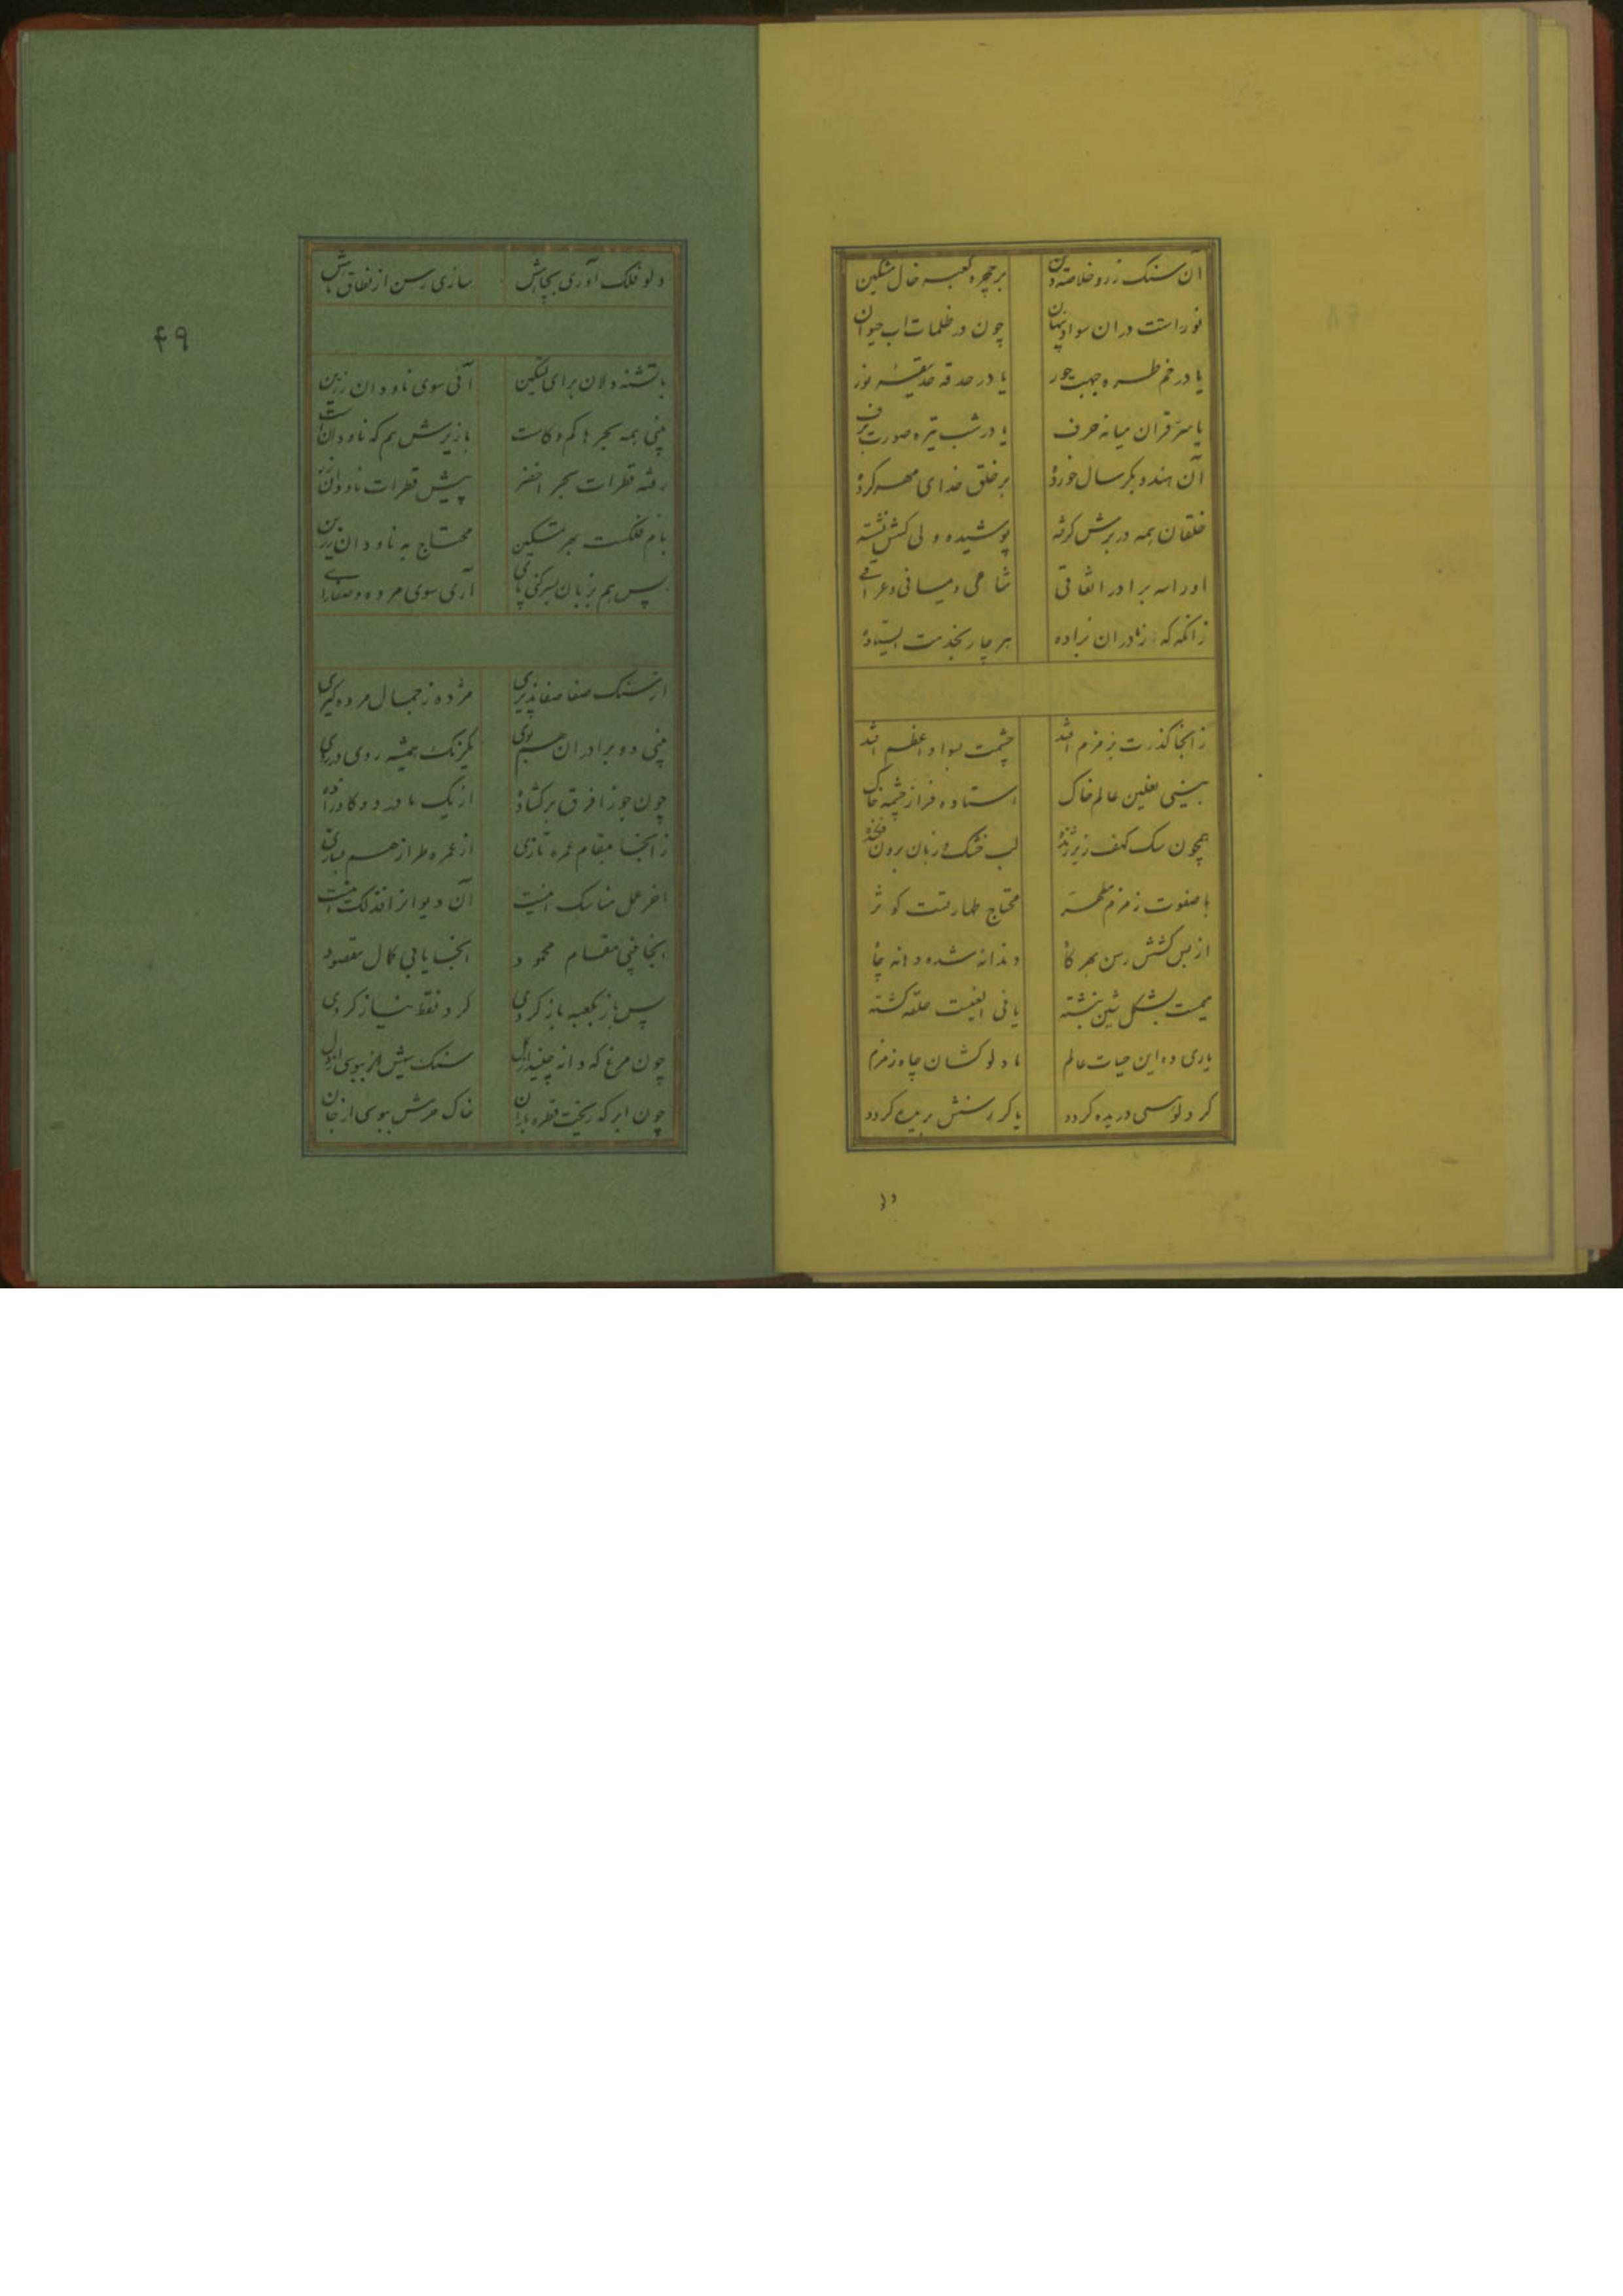 آن سنک زر و خلاصه دین بر چهره کعبه خال مشکین
نور است در ان سواد پنهان چون در ظلمات اب حیوان
یا در خم طره جبهت حور یا در حدقه حدیقه نور
یا سر قران میانه حرف یا در شب تیره صورت برف
آن هندو بکر سال خورده بر خلق خدای مهر کرده
خلقان همه در برش کرفته پوشیده ولی کش نشته
او را سه برادر اتفاقی شامی و یمانی و عراقی
زانکه که ز مادران بزاده هر چار بخدمت ایستاده
زانجا کذرت بزمزم افتد چشمت بسواد اعظم افتد
بینی بغلین عالم خاک استاده فراز چشمه خاک
همچون سک کهف زیر زنده لب خشک و زبان برون فکنده
با صفوت زمزم مطهر محتاج طهارتست کوثر
از بس کشش رسن بهر کاه دندانه شده دهانه چاه
میمست بشکل شین نبشته یا فی الفیست حلقه کشته
یاری ده این حیات عالم با دلو کشان چاه زمزم
کر دلو کسی دریده کردد یا کر رسنش بریده کردد
دلو
دلو فلک آوری بچاهش سازی رسن از نطاق باش
۴۹
با تشنه دلان برای تسکین آئی سوی ناودان زرین
بینی همه بحرها کم و کاست باز برش هم که ناودان است
رفته قطرات بحر اخضر پیش قطرات ناودان بر
بام فلکست بهر تسکین محتاج به ناودان زرین
پس هم بزبان بسر کنی پای آری سوی مروه و صفا رای
از سنک صفا صفا پذیری مژده ز جمال مروه کیری
بینی دو برادران هم بوی یکرنک همیشه روی در روی
چون جوزا فرق بر کشاده از یک مادر دو کا در زاده
زانجا بمقام عمره تازی از عمره طراز هم بسازی
اخر عمل مناسک اینست آن دیوانرا فذلک اینست
انجا بینی مقام محمود انجا یابی کمال مقصود
پس باز بکعبه باز کردی کرد نقط نیاز کردی
چون مرغ که دانه چیند از کل سنک سیش ببوسی از دل
چون ابر که ریخت قطره باران خاک حرمش ببوسی از جان